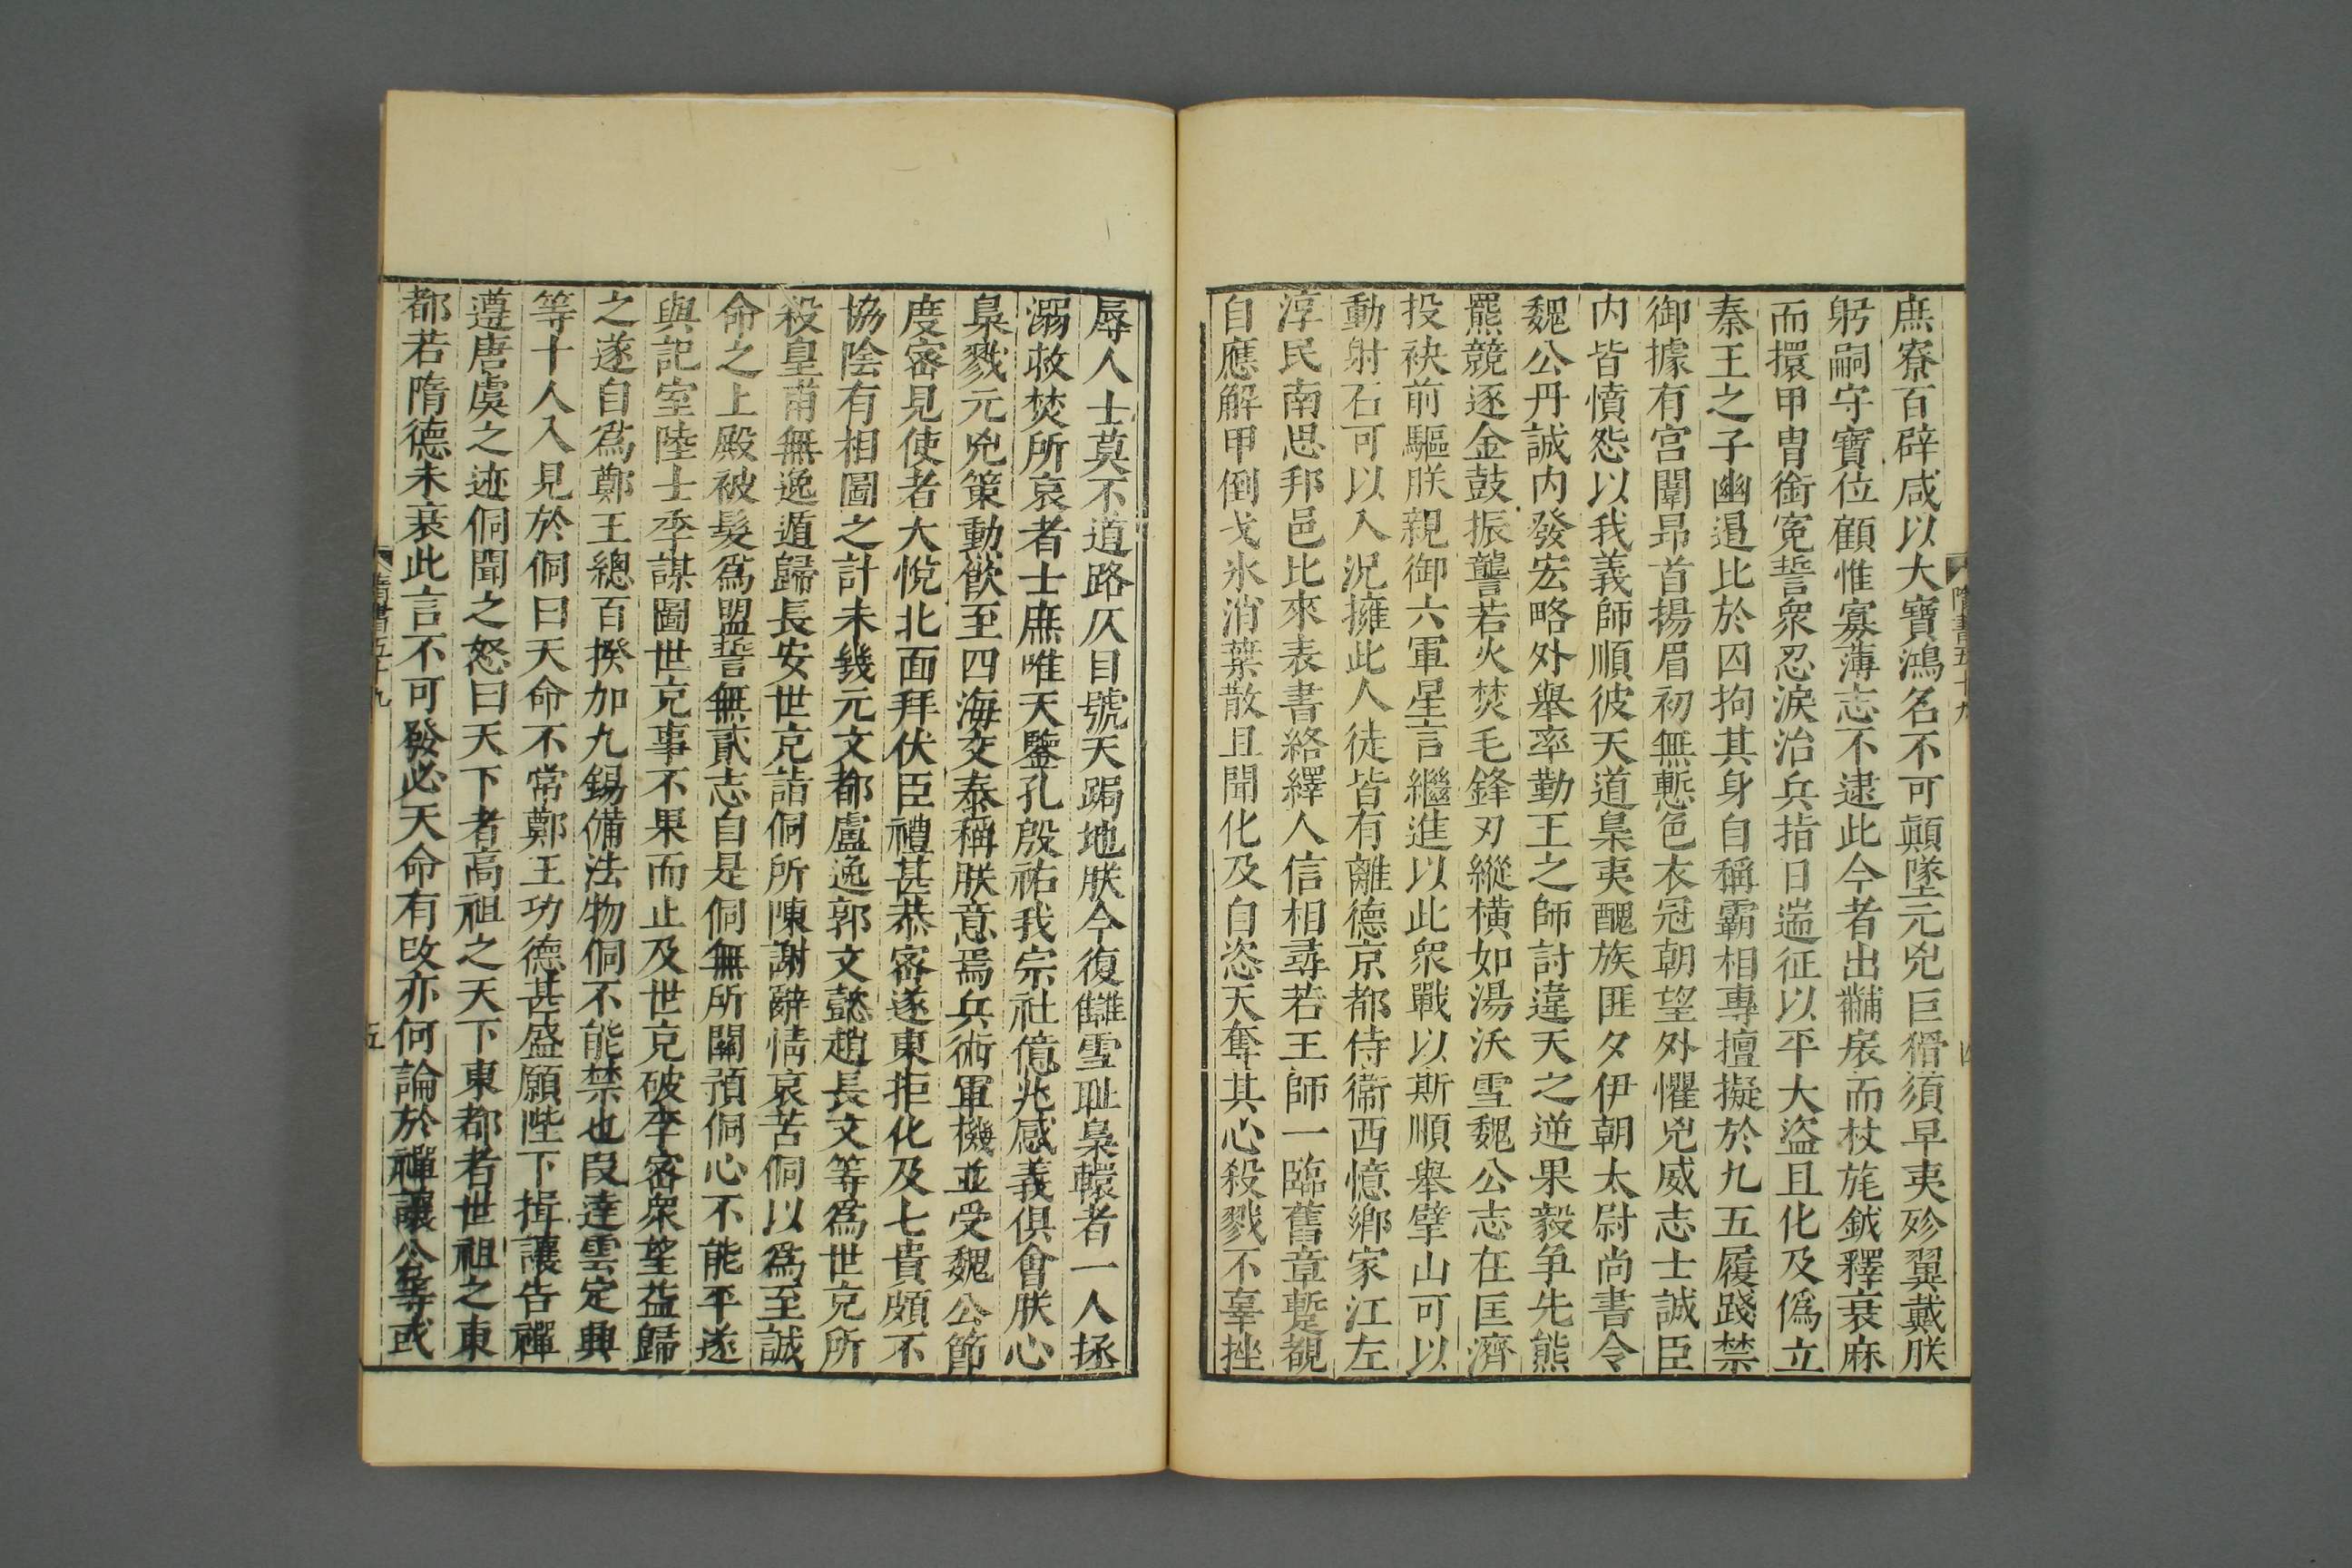 庶寮百辟咸以大寶鴻名不可顛墜元兇巨猾須早夷殄翼戴朕
躬嗣守寶位顧惟寡薄志不逮此今者出黼扆而杖旄鉞釋衰麻
而擐甲冑銜冤誓衆忍淚治兵指日遄征以平大盜且化及僞立
秦王之子幽遏比於囚拘其身自稱霸相專擅擬於九五履踐禁
御據有宮闈昂首揚眉初無慙色衣冠朝望外懼兇威志士誠臣
内皆憤怨以我義師順彼天道梟夷醜族匪夕伊朝太尉尚書令
魏公丹誠内發宏略外舉率勤王之師討違天之逆果毅争先熊
羆競逐金鼓振讋若火焚毛鋒刃縱橫如湯沃雪魏公志在匡濟
投袂前驅朕親御六軍星言繼進以此衆戰以斯順舉擘山可以
動射石可以入況擁此人徒皆有離德京都侍衞西憶鄉家江左
淳民南思邦邑比來表書絡繹人信相尋若王師一臨舊章蹔覩
自應解甲倒戈氷消葉散且聞化及自恣天奪其心殺戮不辜挫
隋書五十九
辱人士莫不道路仄目號天跼地朕今復讎雪耻梟轘者一人拯
溺救焚所哀者士庶唯天鑒孔殷祐我宗社億兆感義俱會朕心
梟戮元兇策勳飲至四海交泰稱朕意焉兵術軍機並受魏公節
度密見使者大悅北面拜伏臣禮甚恭密遂東拒化及七貴頗不
協陰有相圖之計未幾元文都盧逸郭文懿趙長文等爲世充所
殺皇甫無逸遁歸長安世充詣侗所陳謝辭情哀苦侗以爲至誠
命之上殿被髮爲盟誓無貳志自是侗無所關預侗心不能平遂
與記室陸士季謀圖世充事不果而止及世充破李密衆望益歸
之遂自爲鄭王總百揆加九錫備法物侗不能禁也段達雲定興
等十人入見於侗曰天命不常鄭王功德甚盛願陛下揖讓告禪
遵唐虞之迹侗聞之怒曰天下者高祖之天下東都者世祖之東
都若隋德未衰此言不可發必天命有改亦何論於禪讓公等或
隋書五十九
五